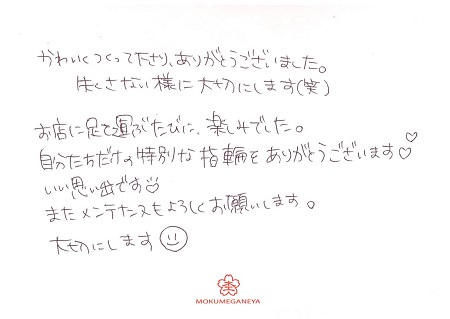 かわいくつくって下さり、ありがとうございました。
失くさない様に大切にします(笑)
お店に足を運ぶたびに、楽しみでした。
自分たちだけの特別な指輪をありがとうございます♡
いい思い出です
またメンテナンスもよろしくお願いします。
大切にします☺
MOKUMEGANEYA